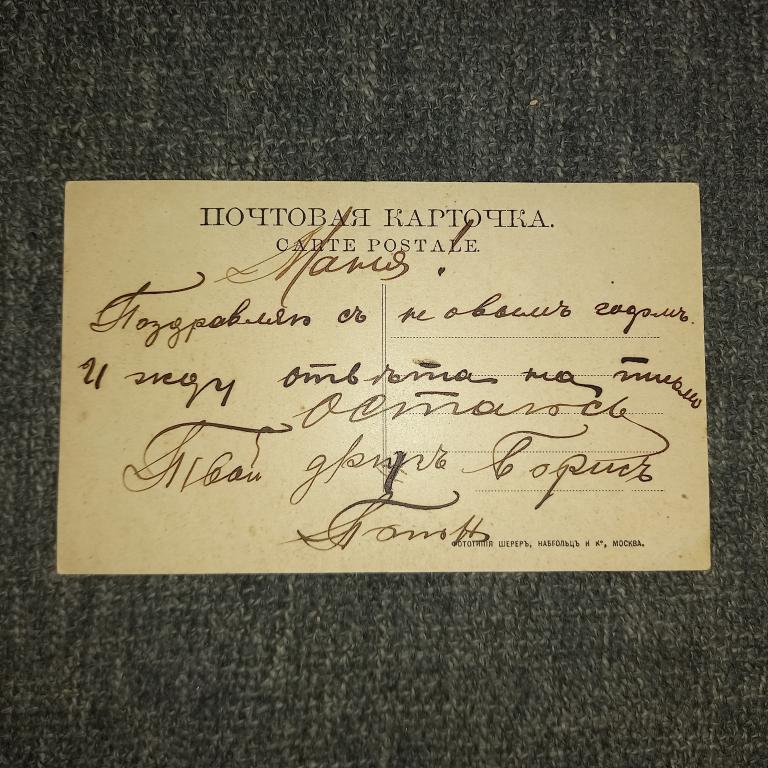 ПОЧТОВАЯ КАРТОЧКА.
CARTE POSTALE.
Маня!
Поздравляю съ новымъ годомъ.
И жду отвѣта на письмо
остаюсь
Твой другъ Борисъ
ФОТОТИПІЯ ШЕРЕРЪ, НАБГОЛЬЦЪ И Кº, МОСКВА.